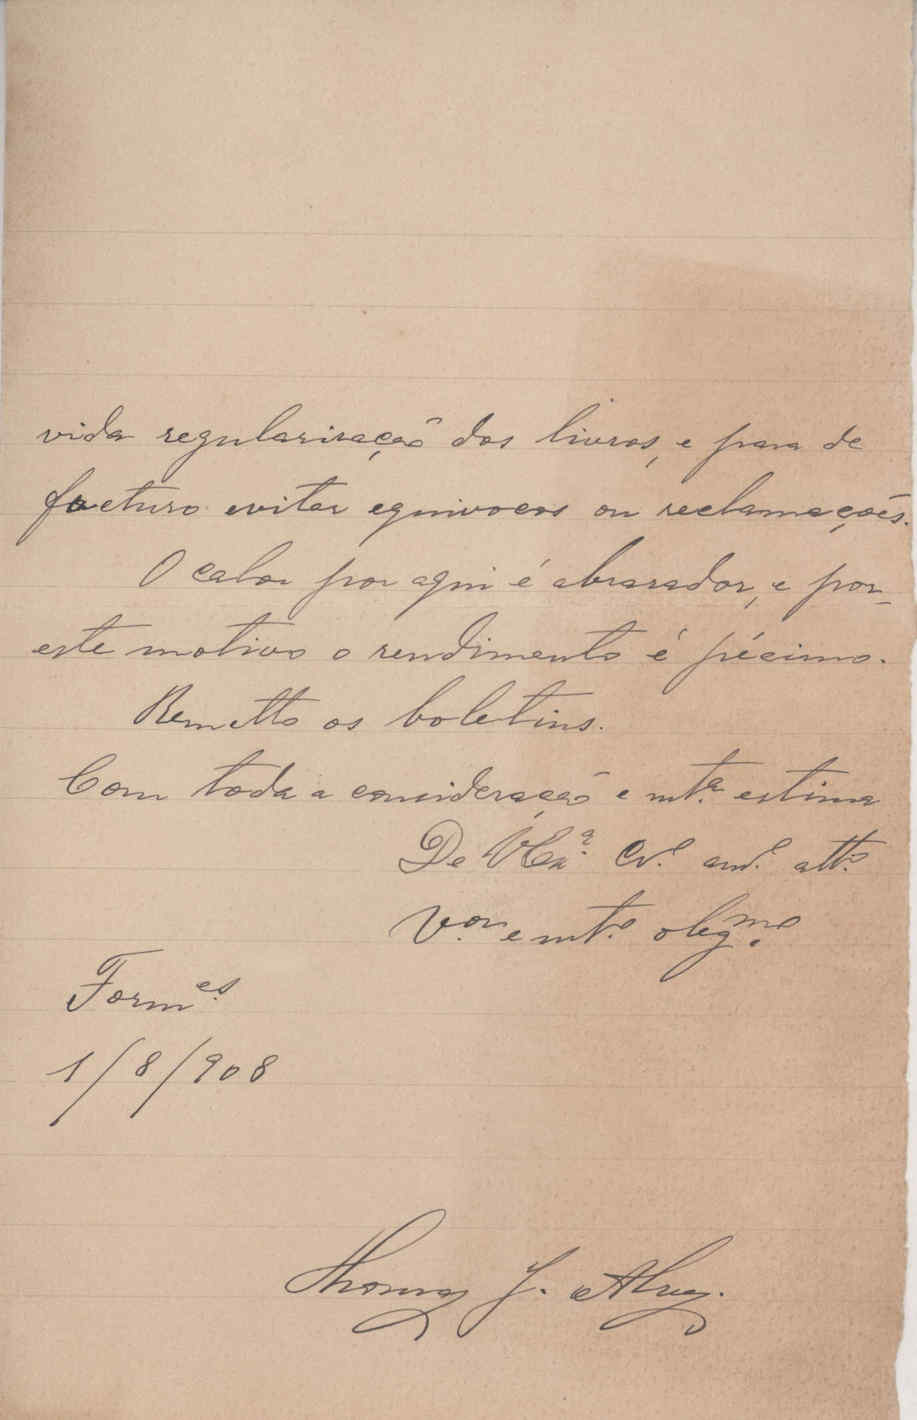 vida regularisação dos livros, e para de
facturo evitar equivocos ou reclamações.
O calor por aqui é abrasador, e por
este motivo o rendimento é pécimo.
Remetto os boletins.
Com toda a consideração e mt.ª estima
De V. Ex.ª Cr.º am.º att.º
V.or e mt.º obig.mo
Form.es
1/8/908
Thomaz J. Alvez.